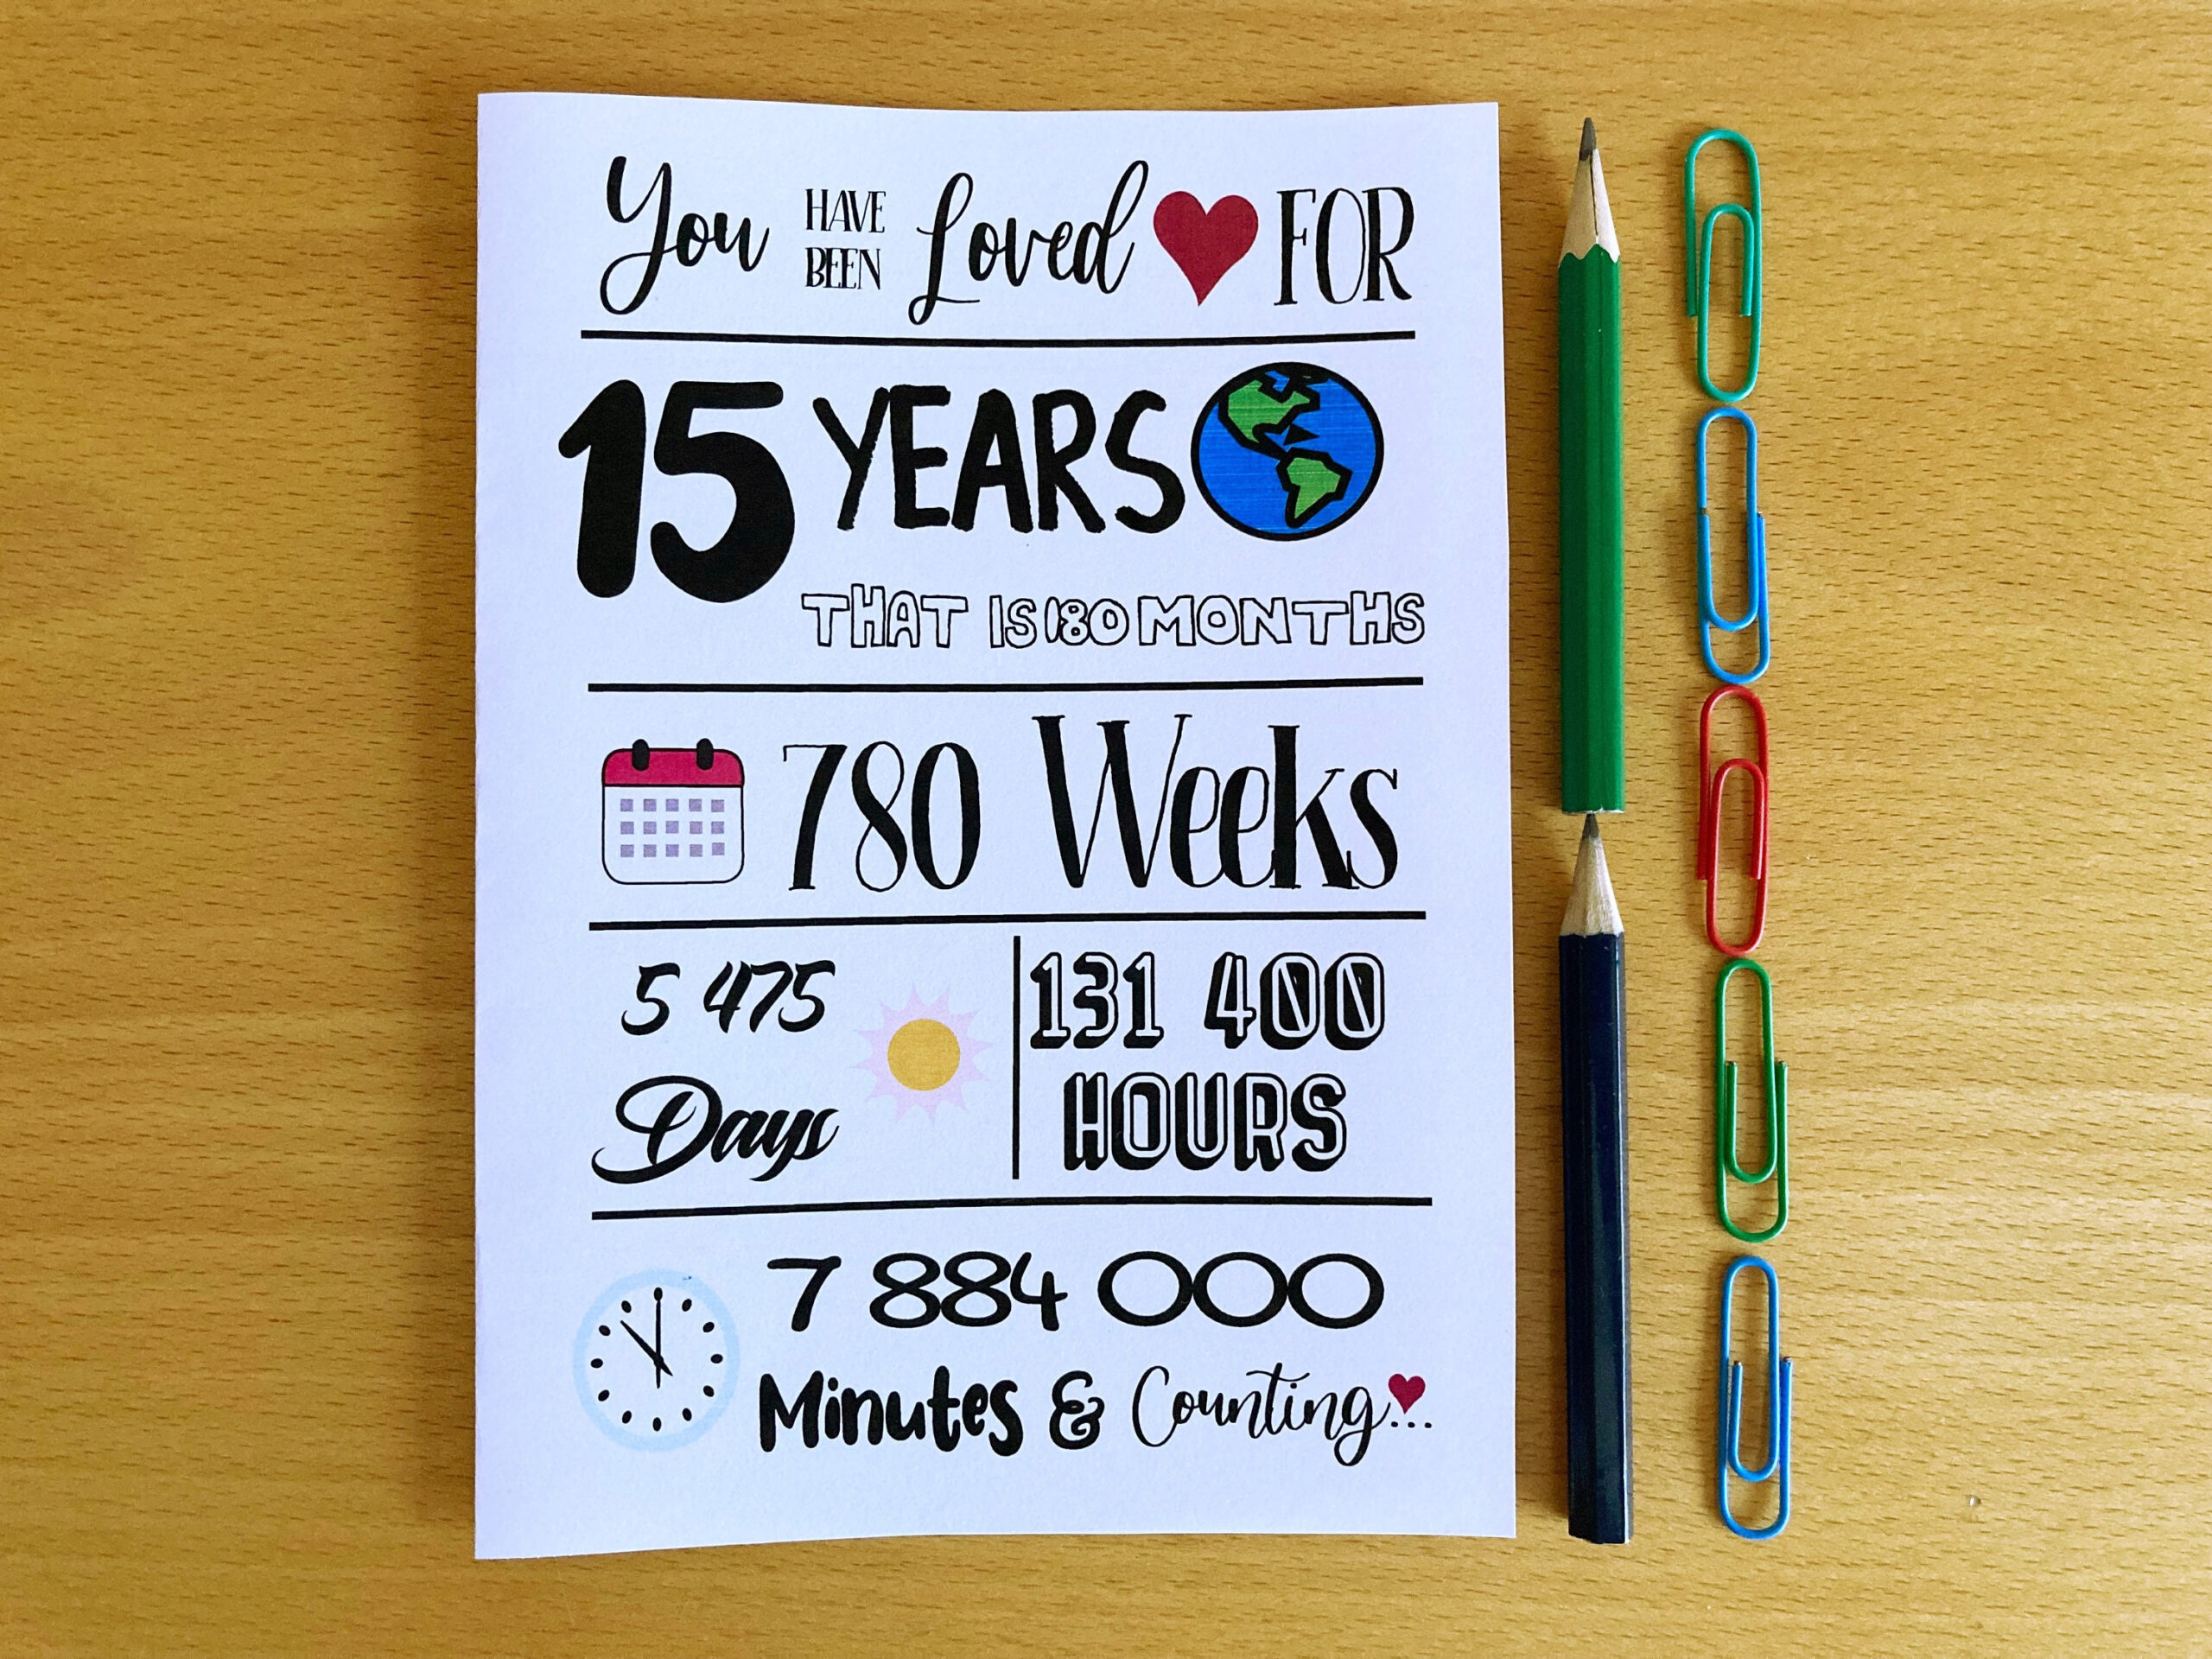 You HAVE BEEN Loved FOR
15 YEARS
THAT IS 180 MONTHS
780 Weeks
5 475
Days
131 400
HOURS
7 884 000
Minutes & Counting...